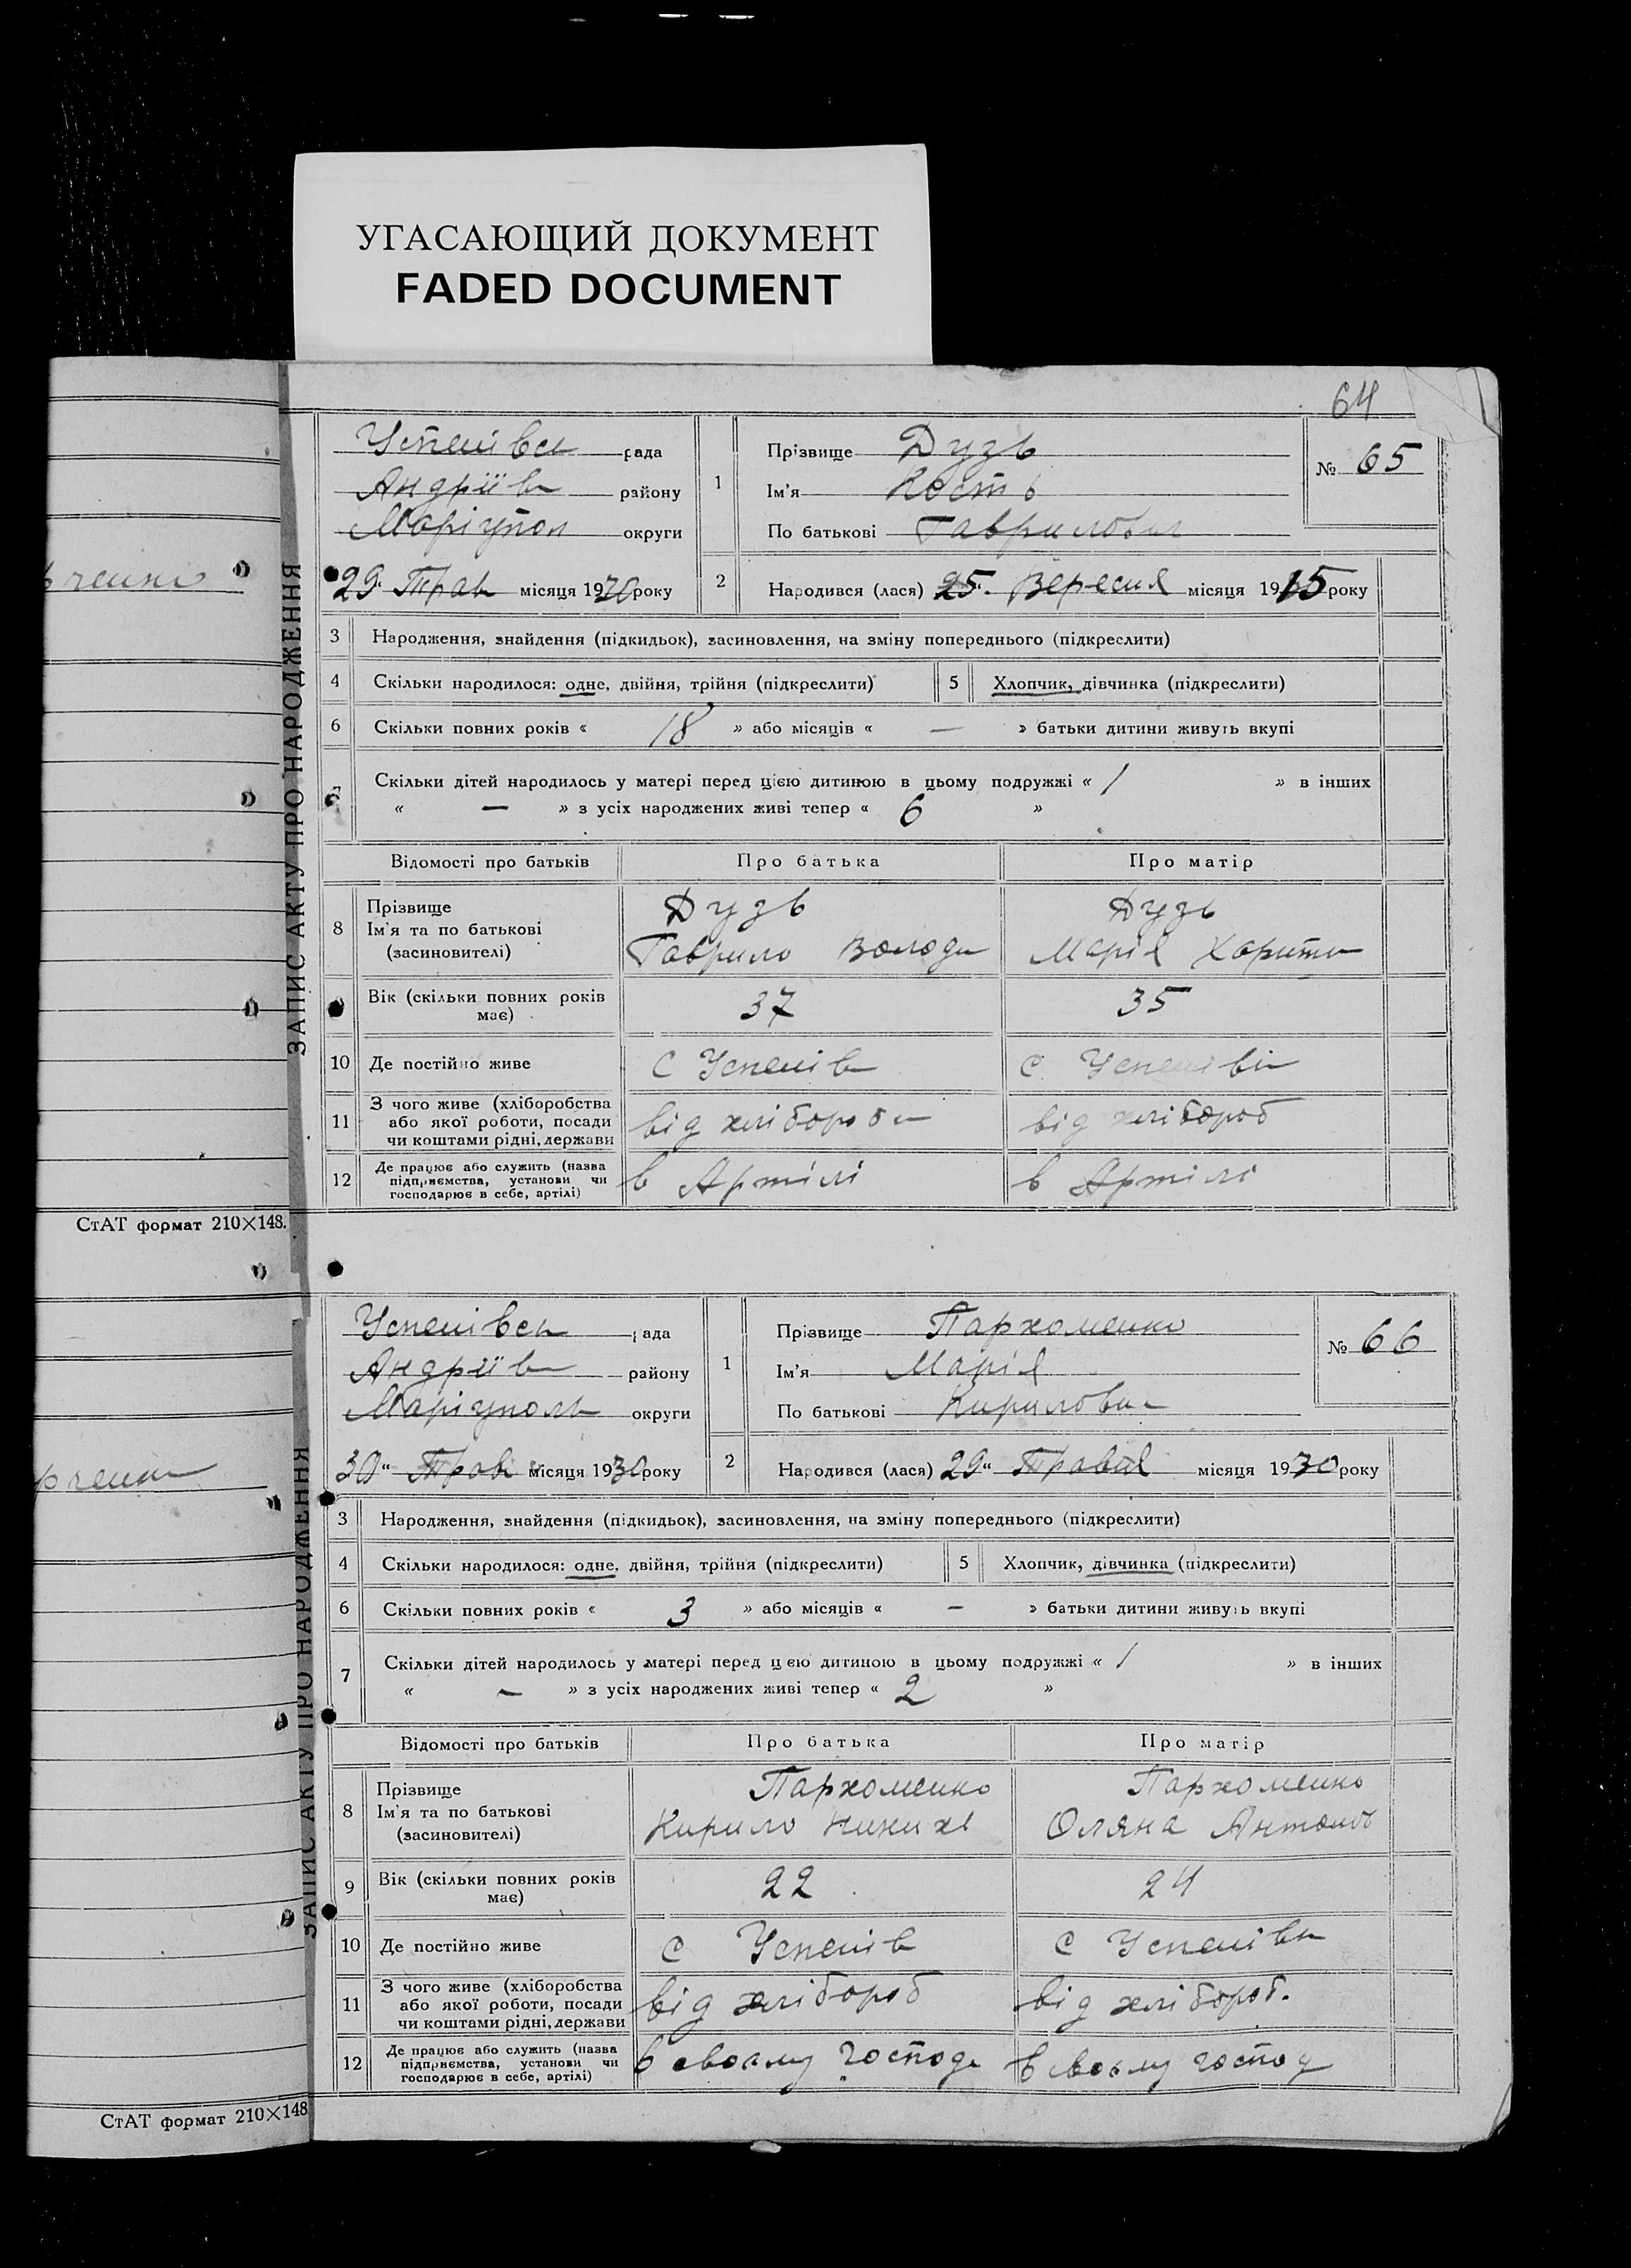 УГАСАЮЩИЙ ДОКУМЕНТ
FADED DOCUMENT
64
ЗАПИС АКТУ ПРО НАРОДЖЕННЯ
Успенівськ рада
Андріїв району
Маріупол округи
29 Трав місяця 1930 року
1 Прізвище Дузь
Ім'я Кость
По батькові Гаврилович
№ 65
2 Народився (лася) 25 Вересня місяця 1915 року
3 Народження, знайдення (підкидьок), засиновлення, на зміну попереднього (підкреслити)
4 Скільки народилося: одне, двійня, трійня (підкреслити) 5 Хлопчик, дівчинка (підкреслити)
6 Скільки повних років « 18 » або місяців « — » батьки дитини живуть вкупі
7 Скільки дітей народилось у матері перед цією дитиною в цьому подружжі « 1 » в інших
« — » з усіх народжених живі тепер « 6 »
Відомості про батьків Про батька Про матір
8 Прізвище Дузь Дузь
Ім'я та по батькові Гаврило Володи Марія Харити
(засиновителі)
Вік (скільки повних років має) 37 35
10 Де постійно живе с Успенів с Успенів
11 З чого живе (хліборобства
або якої роботи, посади від хлібороб від хлібороб
чи коштами рідні, держави
12 Де працює або служить (назва
підприємства, установи чи в Артілі в Артілі
господарює в себе, артілі)
СтАТ формат 210×148.
ЗАПИС АКТУ ПРО НАРОДЖЕННЯ
Успенівськ рада
Андріїв району
Маріуполь округи
30 Трав місяця 1930 року
1 Прізвище Пархоменко
Ім'я Марія
По батькові Кирилов
№ 66
2 Народився (лася) 29 Травня місяця 1930 року
3 Народження, знайдення (підкидьок), засиновлення, на зміну попереднього (підкреслити)
4 Скільки народилося: одне, двійня, трійня (підкреслити) 5 Хлопчик, дівчинка (підкреслити)
6 Скільки повних років « 3 » або місяців « — » батьки дитини живуть вкупі
7 Скільки дітей народилось у матері перед цією дитиною в цьому подружжі « 1 » в інших
« — » з усіх народжених живі тепер « 2 »
Відомості про батьків Про батька Про матір
8 Прізвище Пархоменко Пархоменко
Ім'я та по батькові Кирило Оляна Антонов
(засиновителі)
9 Вік (скільки повних років має) 22 24
10 Де постійно живе с Успенів с Успенівк
11 З чого живе (хліборобства
або якої роботи, посади від хлібороб від хлібороб.
чи коштами рідні, держави
12 Де працює або служить (назва
підприємства, установи чи в своєму господ в своєму господ
господарює в себе, артілі)
СтАТ формат 210×148